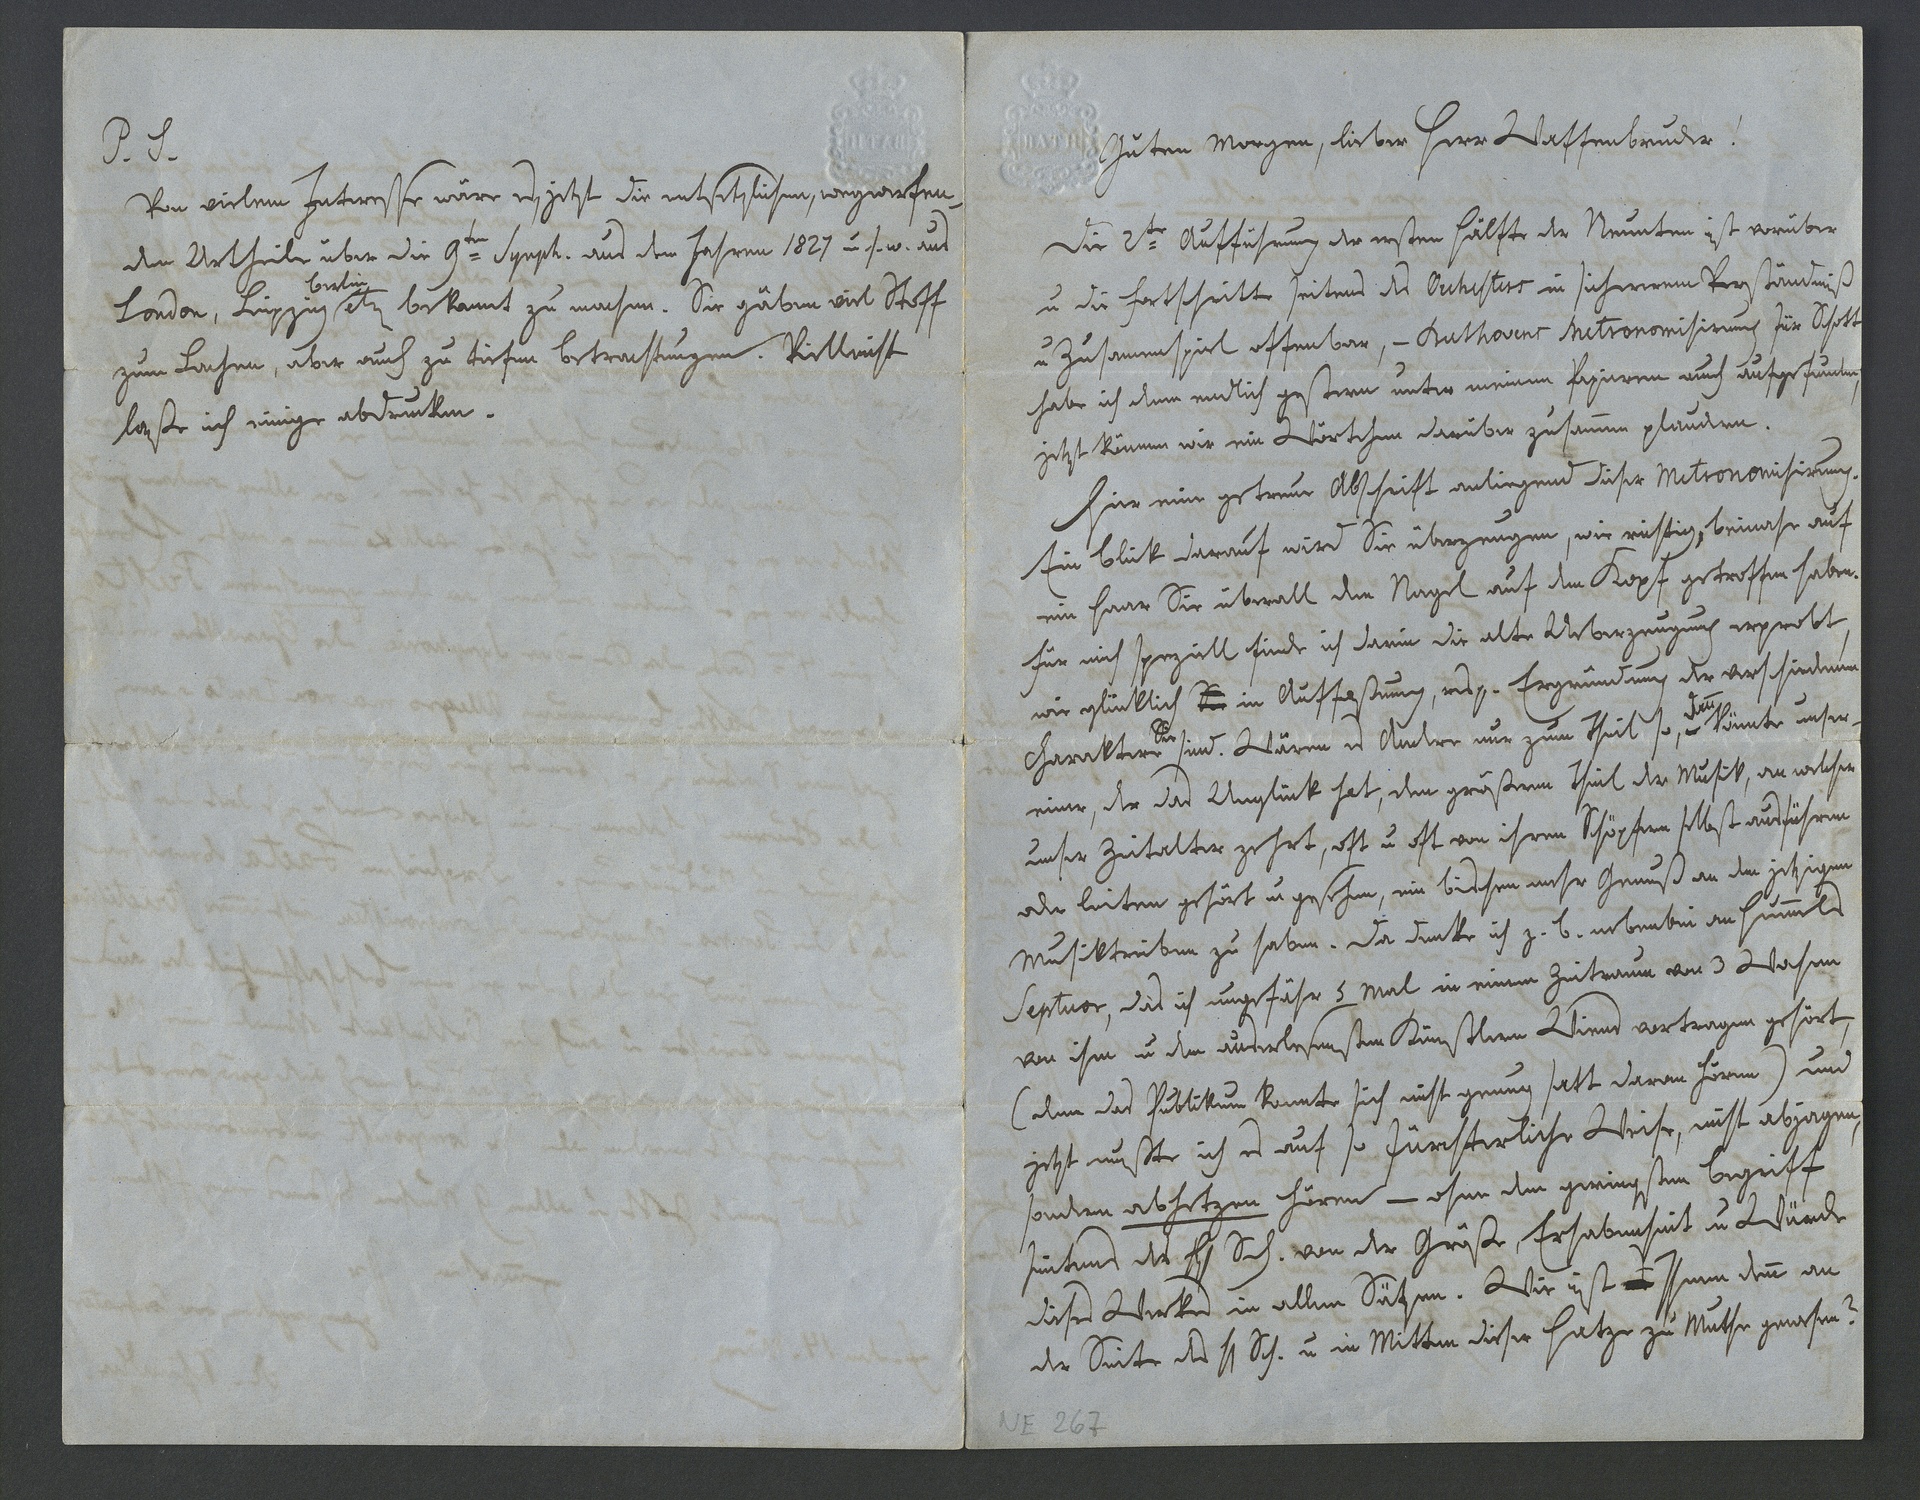 P. S.
Von vielem Interesse wäre es jetzt die entsetzlichen, wegwerfen-
den Urtheile über die 9te Symph. aus den Jahren 1827 u.s.w. aus
London, Leipzig, Berlin etz bekannt zu machen. Sie gäben viel Stoff
zum Lachen, aber auch zu tiefen Betrachtungen. Vielleicht
laße ich einige abdrucken.
BATH
Guten Morgen, lieber Herr Waffenbruder!
Die 2te Aufführung der ersten Hälfte der Neunten ist vorüber
u die Fortschritte seitens des Orchesters in sicherem Verständniß
u Zusammenspiel offenbar, – Beethovens Metronomisirung für Schott
habe ich denn endlich gestern unter meinen Papieren auch aufgefunden,
jetzt können wir ein Wörtchen darüber zusammen plaudern.
Hier eine getreue Abschrift anliegend dieser Metronomisirung.
Ein Blick darauf wird Sie überzeugen, wie richtig, beinahe auf
ein Haar Sie überall den Nagel auf den Kopf getroffen haben.
Für mich speziell finde ich darin die alte Ueberzeugung erprobt,
wie glücklich in Auffaßung, resp. Ergründung der verschiedenen
Charaktere Sie sind. Wären es Andere nur zum Theil so, dann könnte unser-
einer, der das Unglück hat, den größeren Theil der Musik, an welcher
unser Zeitalter zehrt, oft u oft von ihren Schöpfern selbst ausführen
oder leiten gehört u gesehen, ein bischen mehr Genuß an dem jetzigen
Musiktreiben zu haben. Da denke ich z. B. nebenbei an Hummels
Septuor, das ich ungefähr 5 Mal in einem Zeitraum von 3 Wochen
von ihm u den auserlesensten Künstlern Wiens vortragen gehört,
(denn das Publikum konnte sich nicht genug satt daran hören) und
jetzt mußte ich es auf so fürchterliche Weise, nicht abjagen,
sondern abhetzen hören – ohne den geringsten Begriff
seitens des H Sch. von der Größe, Erhabenheit u Würde
dieses Werkes in allen Sätzen. Wie ist Ihnen denn an
der Seite des H Sch. u in Mitten dieser Hatze zu Muthe gewesen?
NE 267